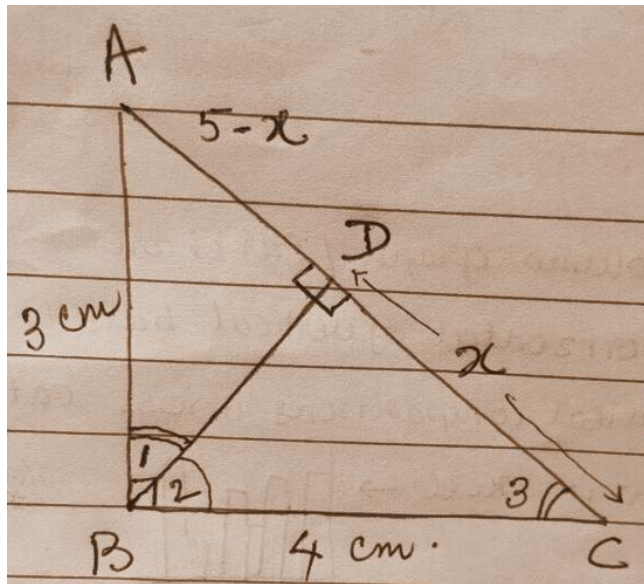 A
5-x
D
3 cm
x
1
2
3
B
4 cm.
C